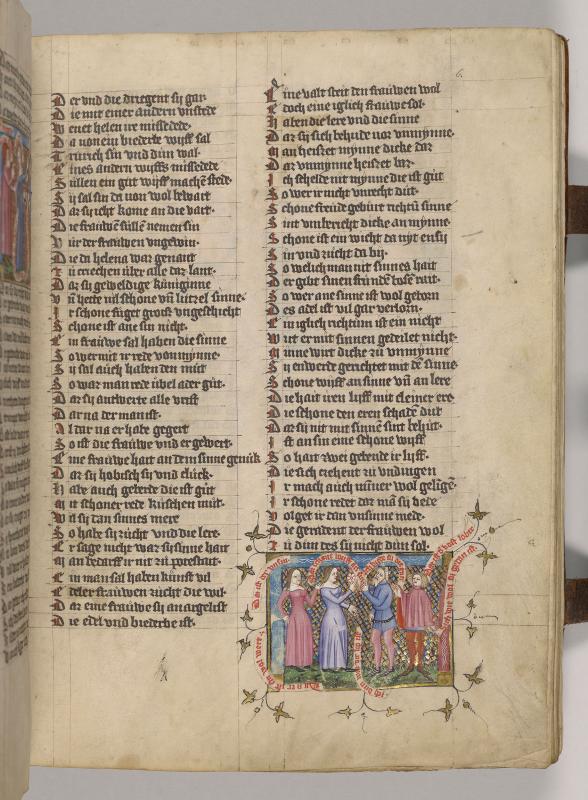 Der vnd die driegent sÿ gar
Die mit einer andern vnstede
Wenet helen ire missedede
Da von ein biederbe wÿff sal
Trurich sin vnd dun wal
Eines andern wÿffs missedede
Sullen ein gut wÿff machē stede
Sÿ sal sin da von wol bewart
Daz sÿ icht kome an die vart
Die frauwē sullē nemen sin
Vür der frauwen vngewin
Die da helena waz genant
Zu criechen über alle daz lant
Daz sÿ geweldige küniginne
Vn̄ hette vil schone vn̄ lutzel sinne
Ir schone füget groß vngeschicht
Schone ist ane sin nicht
Ein frauwe sal haben die sinne
So wer mit ir rede von mÿnne
Sÿ sal auch haben den mut
So waz man rede ubel ader gut
Daz sÿ antwerte alle vrist
Dar na der man ist
Al dar na er habe gegert
So ist die frauwe vnd er gewert
Eine frauwe hait an dem sinne genuk
Daz sÿ hobisch sÿ vnd cluck
Habe auch geberde die ist gut
Mit schoner rede kuschen mut
Wil sÿ dan sinnes mere
So habe sÿ zucht vnd die lere
Er sage nicht waz sÿ sinne hait
Man bedarff ir nit zu potestait
Ein man sal haben kunst vil
Edeler frauwen zucht die wil
Daz eine frauwe sÿ an argelist
Die edel vnd biederbe ist
6.
Eine valt steit den frauwen wol
Edoch eine iglich frauwe sol
Haben die lere vnd die sinne
Daz sÿ sich behude vor vnmÿnne
Man heisset mÿnne dicke daz
Daz vnmÿnne heisset baz
Ich schelde nit mÿnne die ist gut
So wer ir nicht vnrecht dut
Schone freude gebürt richtū sinne
Sint vmbericht dicke an mÿnne
Schone ist ein wicht da nÿt en sÿ
Sin vnd zucht da bÿ
So welich man nit sinnes hait
Der gibt sinen frūdē bose rait
So wer ane sinne ist wol geborn
Des adel ist vil gar verlorn
Ein iglich richtum ist ein nicht
Wirt er mit sinnen gedeilet nicht
Minne wirt dicke zu vnmÿnne
Sÿ enwerde gerichtet mit dē sinne
Schone wÿff an sinne vn̄ an lere
Die hait iren lÿff mit cleiner ere
Die schone den eren schadē dut
Daz sÿ nit mit sinnē sint behut
Ist an sin eine schone wÿff
So hait zwei gebende ir lÿff
Die sich ziehent zu vndugen
Ir mach auch niūer wol geligē
Ir schone redet daz mā sÿ bede
Volget ir dan vnsinne mede
Die geradent der frauwen wol
Zu dun des sÿ nicht dun sol